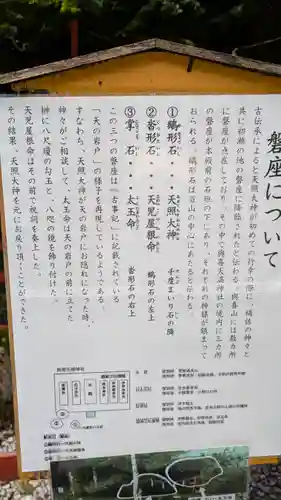 磐座について
古伝承によると天照大神が初めての行幸の際に、橘諸の神々と
共に初瀬の地の磐座に降臨されたと伝わる。與喜山には数カ所
に磐座が存在しており、その中で與喜天満神社の境内に三カ所
の磐座が本殿前の石段の下にあり、それぞれの神様が鎮まって
おられる。鵝形石は百山の中心にあたると伝わる。
①鵝形石・・・天照大神 手摩まいり石の隣
②沓形石・・・天児屋根命 鵝形石の左上
③掌石・・・太玉命 沓形石の右上
この三つの磐座は『古事記』に記載されている
「天の岩戸」の様子を再現しているようである。
すなわち、天照大神が天の岩戸にお隠れになった時、
神々がご相談して、太玉命は天の岩戸の前に立てた
榊に八尺瓊の勾玉と、八咫の鏡を飾り付けた。
天児屋根命はその前で祝詞を奏上した。
その結果、天照大神を元にお戻り頂くことができた。